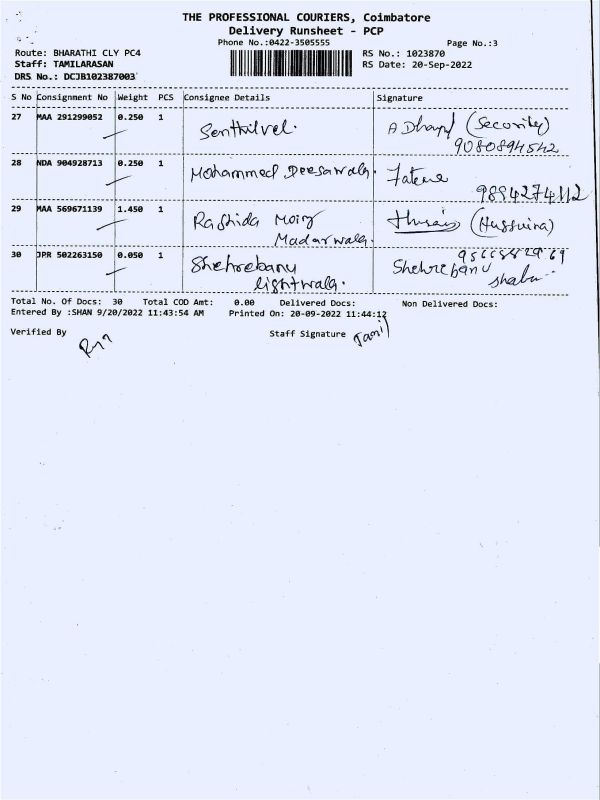 THE PROFESSIONAL COURIERS, Coimbatore
Delivery Runsheet - PCP
Phone No.:0422-3505555
Page No.:3
Route: BHARATHI CLY PC4
RS No.: 1023870
Staff: TAMILARASAN
RS Date: 20-Sep-2022
DRS No.: DCJB102387003
S No Consignment No Weight PCS Consignee Details Signature
27 MAA 291299052 0.250 1 Senthilvel. (Security)
9080894542
28 NDA 904928713 0.250 1 Mohammed Deesawala. Fateme
9894274112
29 MAA 569671139 1.450 1 Rashida Moiz
Madarwala.
30 JPR 502263150 0.050 1 Shehrebanu Shehrebanu
lightwala.
Total No. Of Docs: 30 Total COD Amt: 0.00 Delivered Docs: Non Delivered Docs:
Entered By :SHAN 9/20/2022 11:43:54 AM Printed On: 20-09-2022 11:44:12
Verified By Staff Signature Tamil